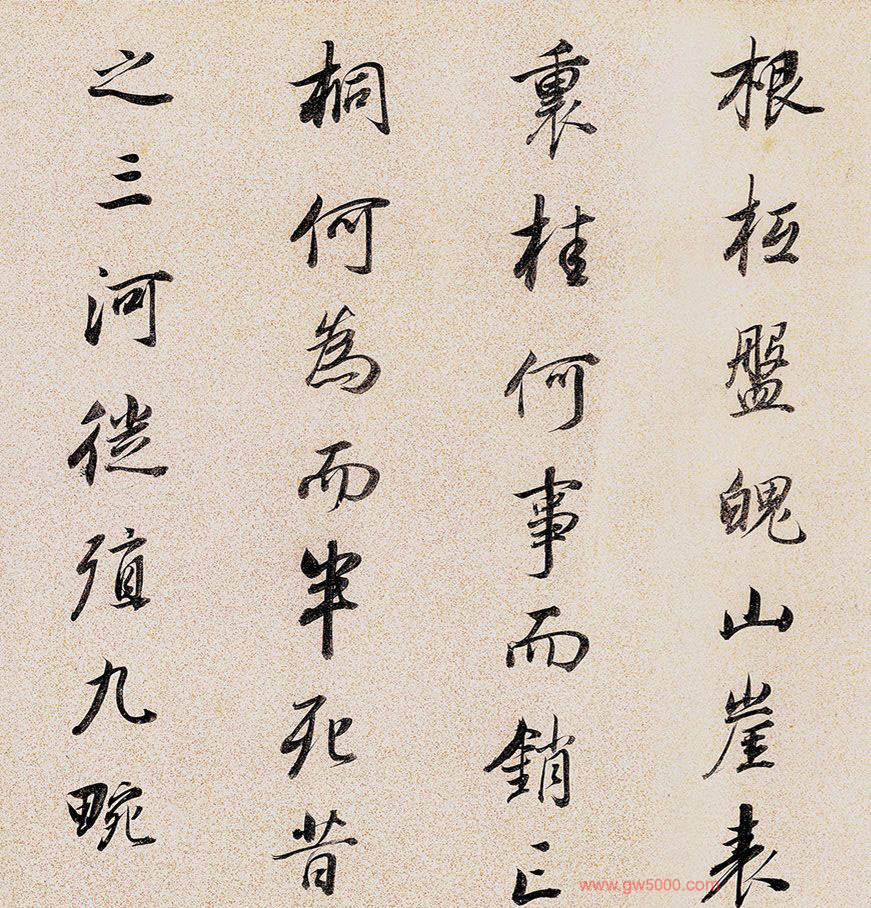 根柢盤魄山崖表
裏桂何事而銷亡
桐何為而半死昔
之三河徙殖九畹
www.gw5000.com